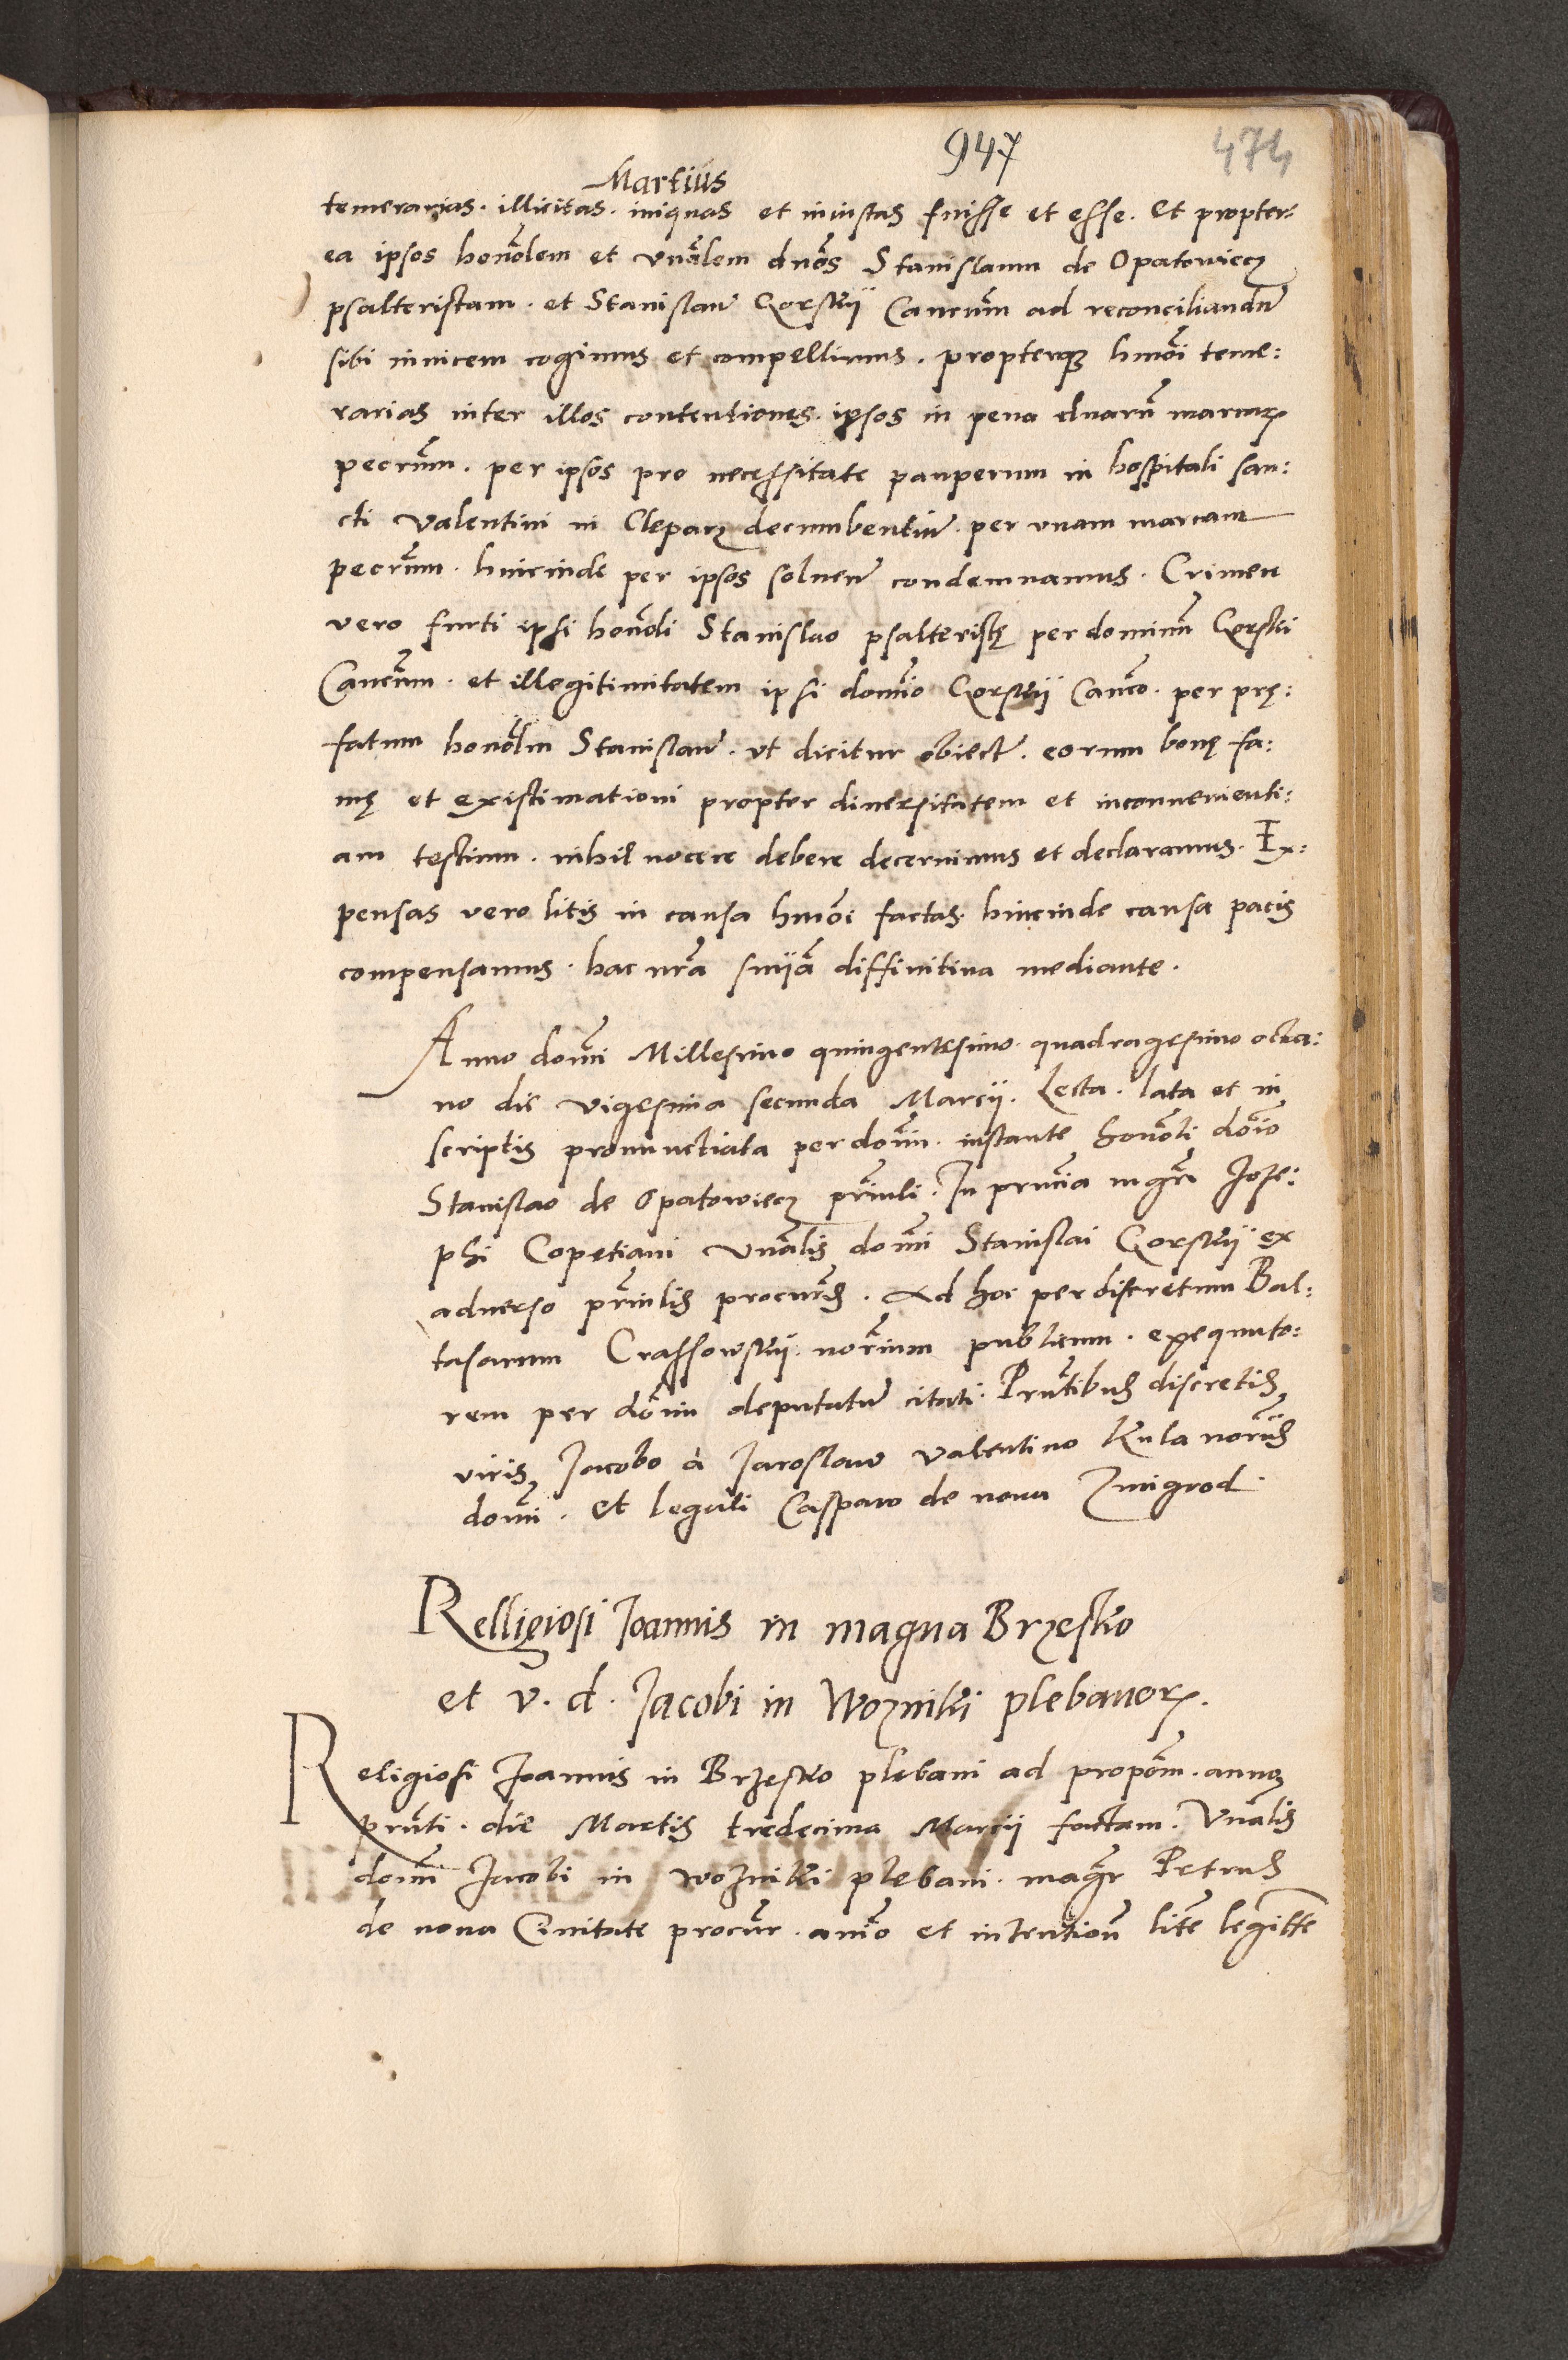 947
474
Martius
temerarias. illicitas. iniquas et iniustas fuisse et esse. Et propter:
ea ipsos honoꝉlem et vnãlem dnõs Stanislaum de Opatowiecz
psalteristam. et Stanislaũ Gorskij Cancũm ad reconciliandũ
sibi inuicem cogimus et compellimus. propterqʒ hmõi teme:
rarias inter illos contentiones. ipsos in pena duarũ marcarꝝ
pecũm. per ipsos pro necessitate pauperum in hospitali san:
cti Valentini in Cleparz decumbentiũ. per vnam marcam
pecũm. hincinde per ipsos soluen̄ condemnamus. Crimen
vero furti ipsi honõli Stanislao psalteristę per dominũ Gorski
Cancũm. et illegitimitatem ipsi domĩo Gorskij Canco. per prę:
fatum honõlm Stanislaũ. vt dicitur obiect̃. eorum bonę fa:
mę et existimationi propter diuersitatem et inconuenienti:
am testium. nihil nocere debere decernimus et declaramus. Ex:
pensas vero litis in causa hmõi factas. hincinde causa pacis
compensamus. hac nrã sniiã diffinitiua mediante.
Anno domĩ Millesimo quingentesimo quadragesimo octa:
uo die vigesima secunda Marcij. Lecta. lata et in
scriptis pronunctiata per domĩn. instante honõli doĩo
Stanislao de Opatowiecz prĩnli. In prñcia mgrĩ Jose:
phi Copetiani vnãlis domĩ Stanislai Gorskij ex
aduerso prĩnlis procurĩs. Ad hoc per discretum Bal:
tasarum Crassowskij norĩum publicum. exequuto:
rem per dõmin deputatũ citati. Prñtibus discretis
viris, Jacobo à Jaroslaw Valentino Kula norĩjs
domĩ. et leguli Casparo de noua Zmigrod.
Relligiosi Joannis in magna Brzesko
et v̄. d. Jacobi in Wozniki plebanorꝝ.
Religiosi Joannis in Brzesko plebani ad propõm. anno
prñti. die Martis tredecima Marcij factam. Vnãlis
domĩ Jacobi in Wozniki plebani. magr̃ Petrus
de noua Ciuitate procũr. anĩo et intentioñ litẽ legitte